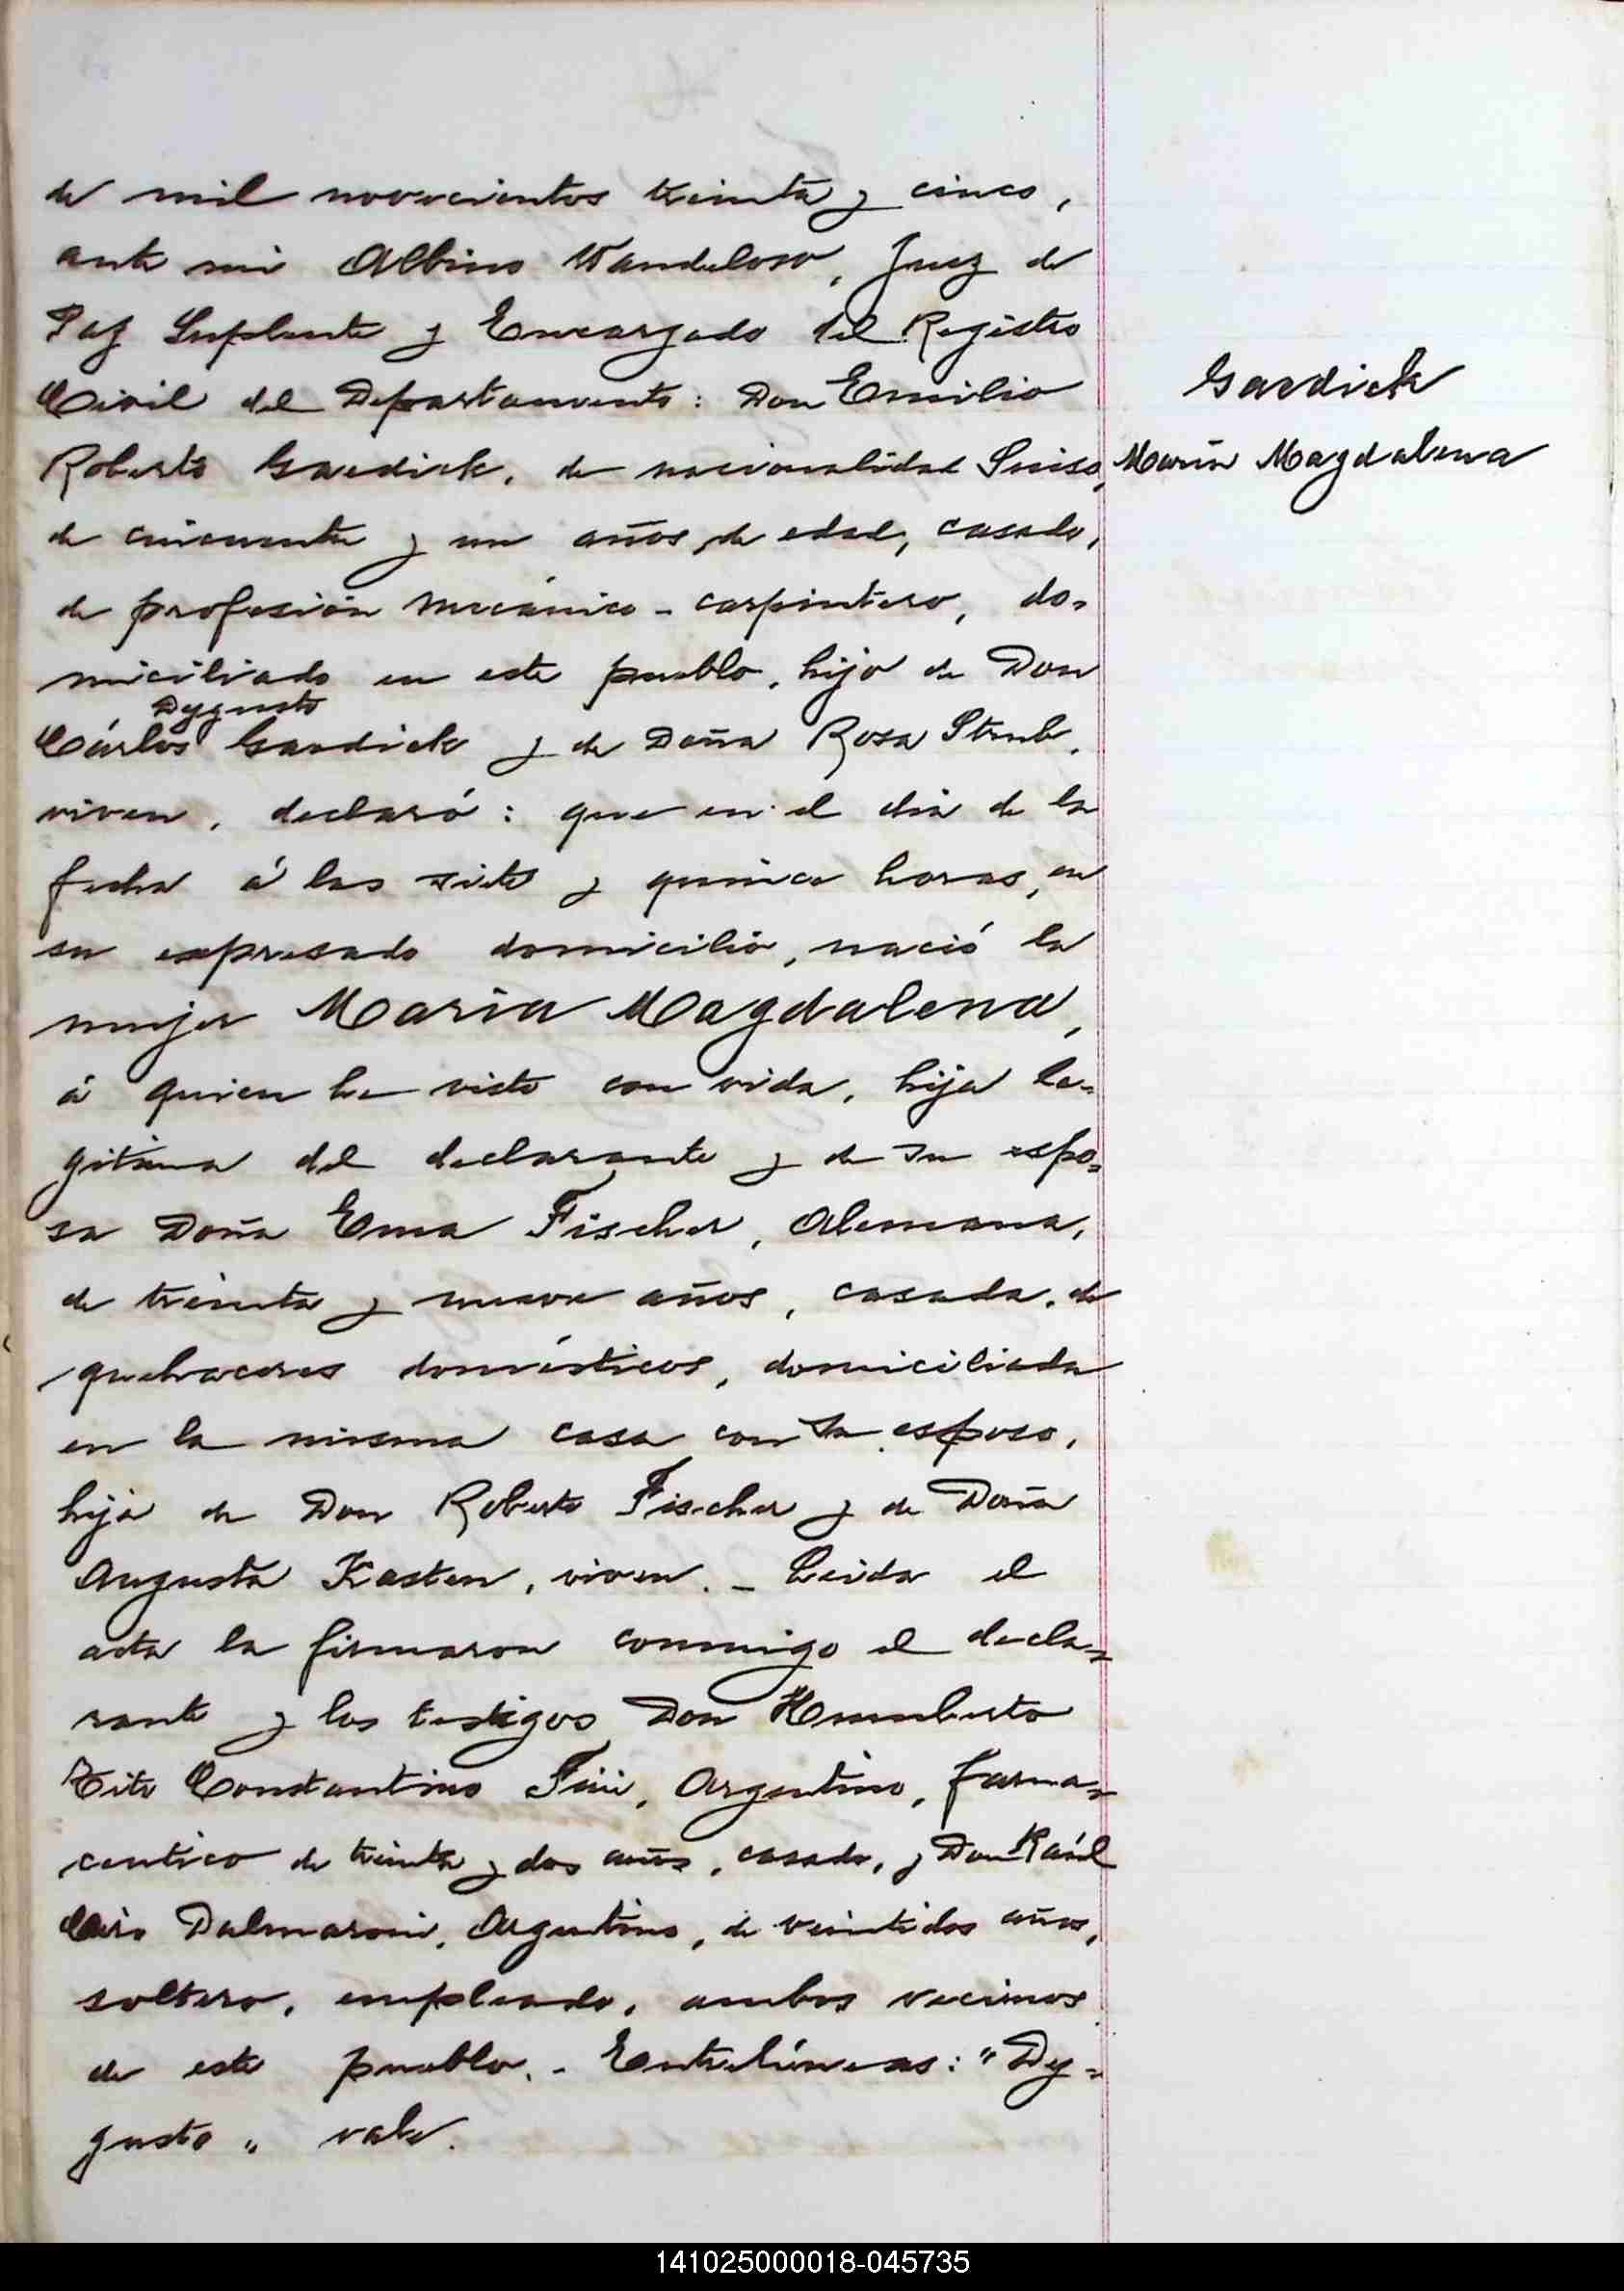 de mil novecientos treinta y cinco,
ante mi Albino Wandelow, Juez de
Paz Suplente y Encargado del Registro
Civil del Departamento: Don Emilio
Roberto Gaedick, de nacionalidad Suiso,
de cincuenta y un años de edad, casado,
de profesión Mecánico - carpintero, do=
miciliado en este pueblo, hijo de Don
Dygusto
Cárlos Gaedick y de Doña Rosa Strub,
viven, declaró: que en el dia de la
fecha á las siete y quince horas, en
su expresado domicilio, nació la
mujer Maria Magdalena,
á quien he visto con vida, hija le=
gitima del declarante y de su espo=
sa Doña Ema Fischer, Alemana,
de treinta y nueve años, casada, de
quehaceres domésticos, domiciliada
en la misma casa con su esposo,
hija de Don Roberto Fischer y de Doña
Augusta Kasten, viven. - Leida el
acta la firmaron conmigo el decla=
rante y los testigos Don Humberto
Tito Constantino Fini, Argentino, farma=
ceutico de treinta y dos años, casado, y Don Raúl
Ciro Dalmaroni, Argentino, de veintidos años,
soltero, empleado, ambos vecinos
de este pueblo. - Entrelíneas: "Dy=
gusto" vale.
Gaedick
Maria Magdalena
141025000018-045735